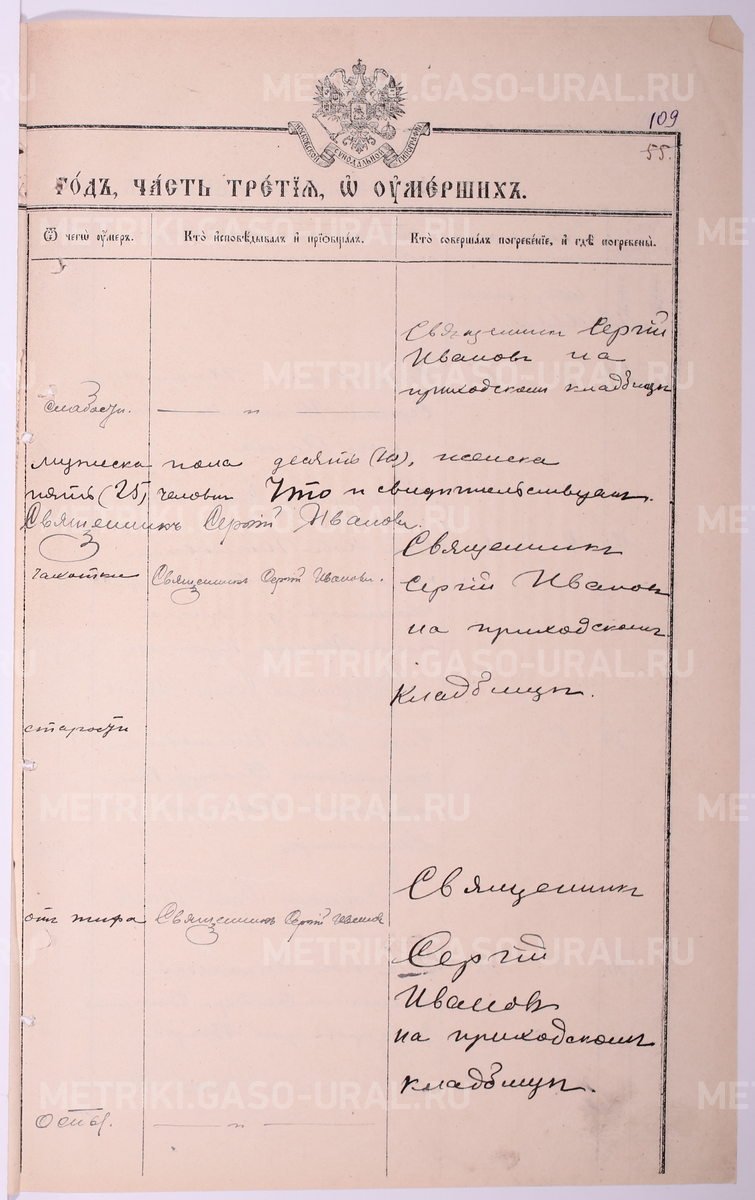 109
55.
МОСКОВСКОЙ СѴНОДАЛЬНОЙ ТИПОГРАФІИ
го́дъ, ча́сть тре́тїѧ, ѡ҆ ᲂу҆ме́ршихъ.
Ѿ чегѡ̀ ᲂу҆́меръ.
Кто̀ и҆сповѣ́дывалъ и҆ прїѡбща́лъ.
Кто̀ соверша́лъ погребе́нїе, и҆ гдѣ̀ погребены̀.
Священникъ Сергій
Ивановъ на
приходскомъ кладбищѣ
слабости.
— „ —
мужеска пола десять (10), женска
пять (25) человѣкъ Что и свидѣтельствуемъ.
Священникъ Сергій Ивановъ.
чахотки
Священникъ Сергій Ивановъ.
Священникъ
Сергій Ивановъ
на приходскомъ
кладбищѣ.
старости
отъ тифа
Священникъ Сергій Ивановъ
Священникъ
Сергій
Ивановъ
на приходскомъ
кладбищѣ.
Оспы.
— „ —
METRIKI.GASO-URAL.RU